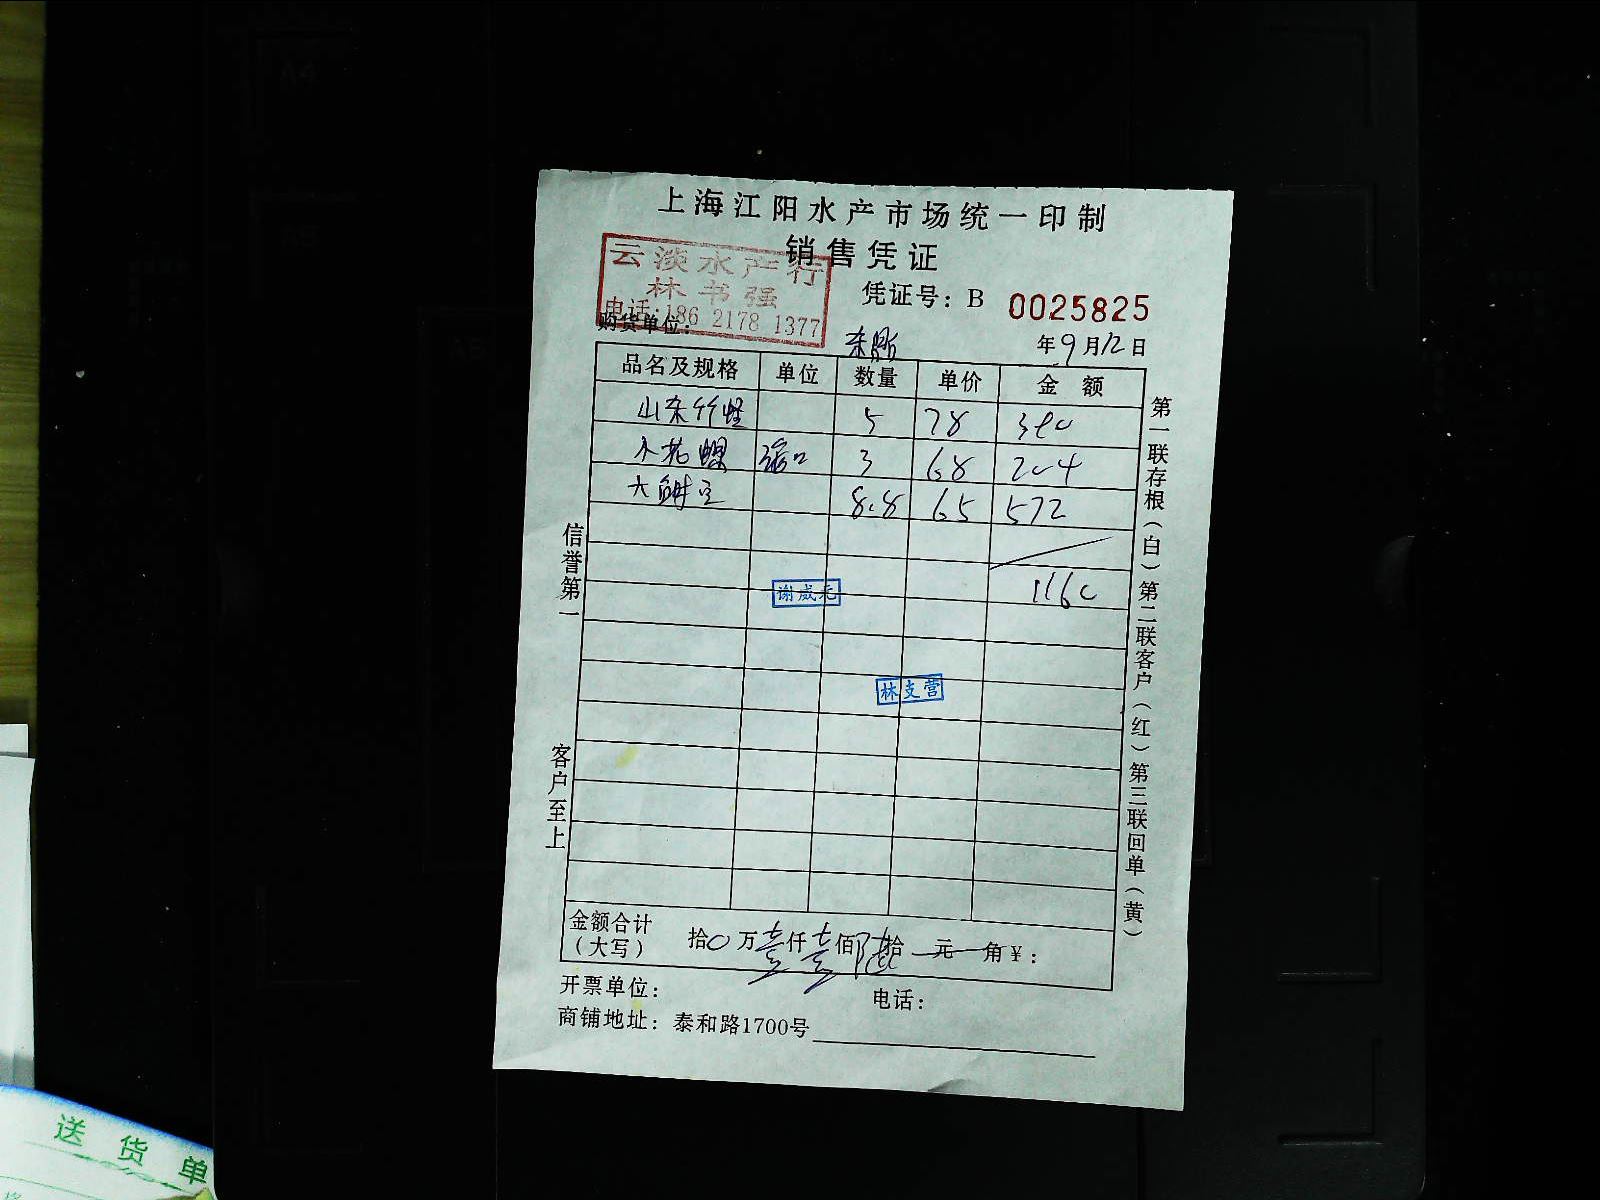 上海江阳水产市场统一印制
销售凭证
云淡水产行
林书强
电话:186 2178 1377
凭证号：B 0025825
购货单位：
年9月12日
品名及规格 单位 数量 单价 金额
山东竹蛏 5 78 390
小花螺 3 68 204
大 8.8 65 572
1160
谢威
林支营
信誉第一
客户至上
第一联存根（白）第二联客户（红）第三联回单（黄）
金额合计（大写） 拾0万壹仟壹佰陆拾元角¥：
开票单位： 电话：
商铺地址：泰和路1700号
送货单